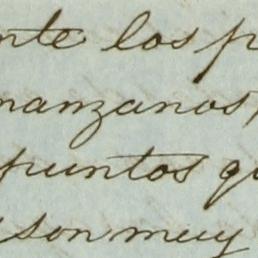 nte los p
manzanos,
puntos qu
son muy